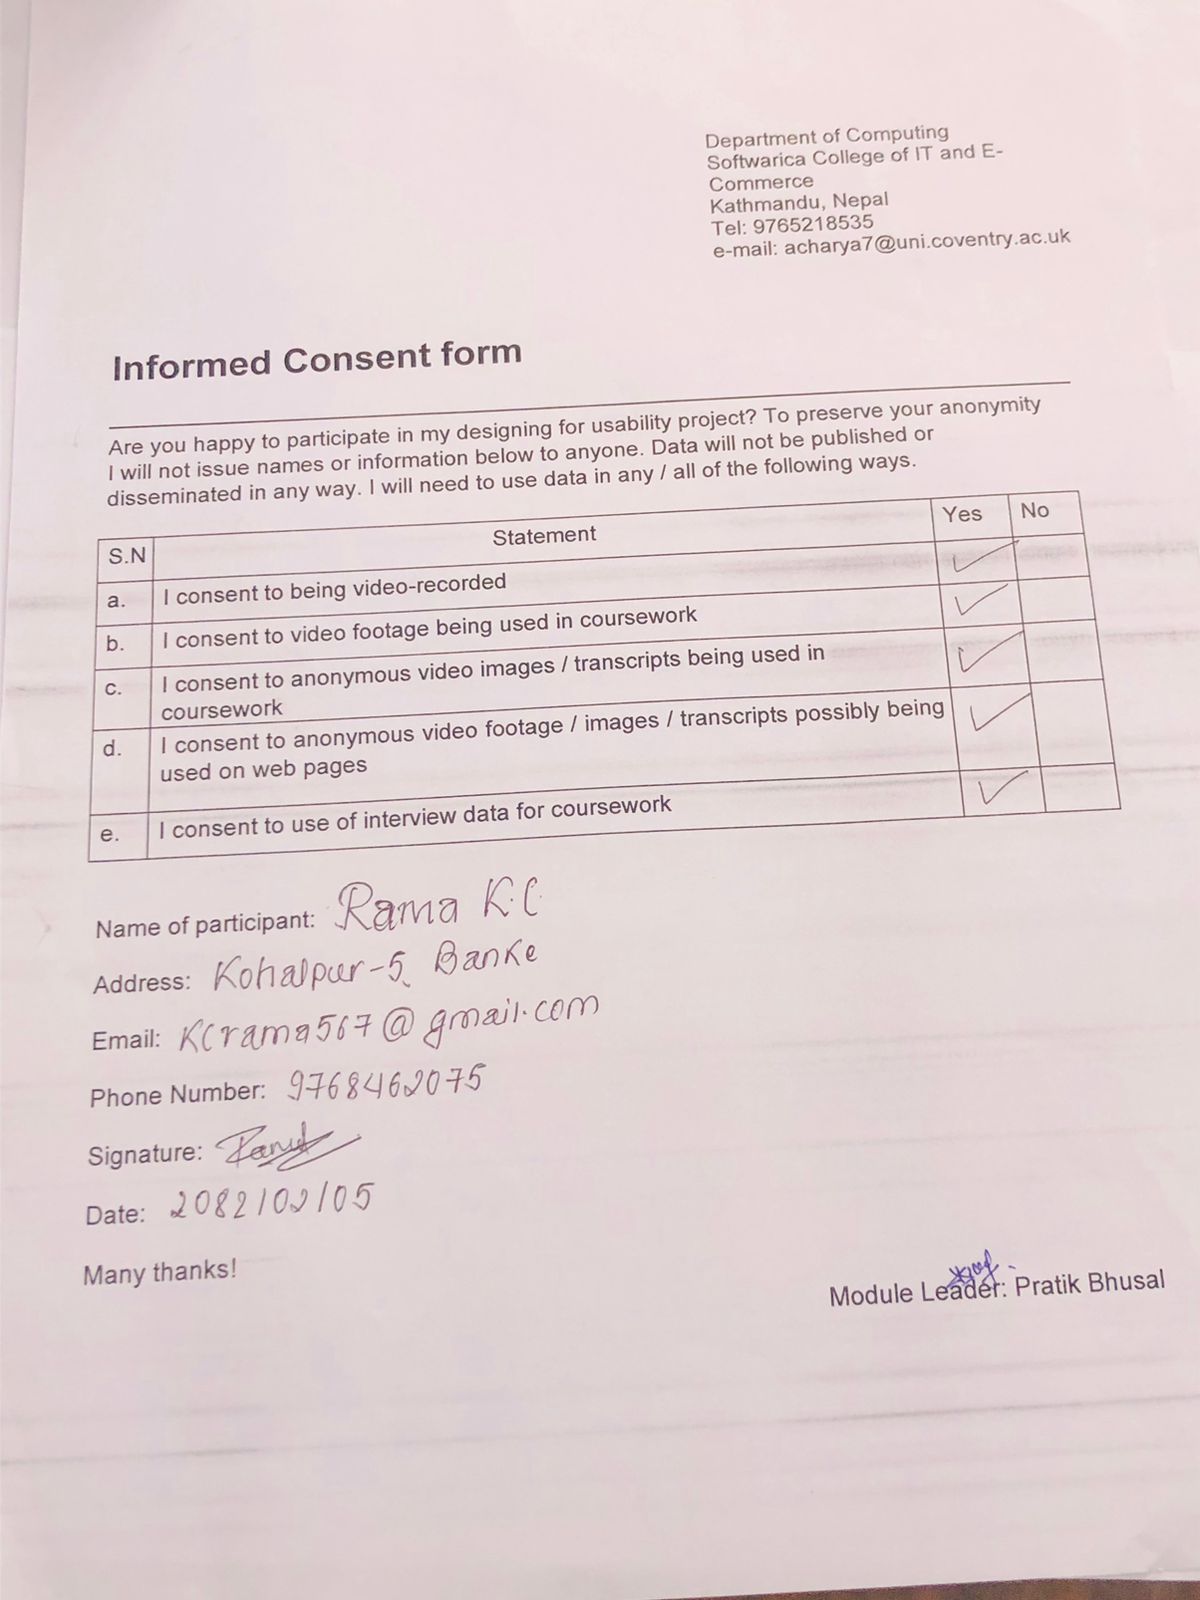 Department of Computing
Softwarica College of IT and E-
Commerce
Kathmandu, Nepal
Tel: 9765218535
e-mail: acharya7@uni.coventry.ac.uk
Informed Consent form
Are you happy to participate in my designing for usability project? To preserve your anonymity
I will not issue names or information below to anyone. Data will not be published or
disseminated in any way. I will need to use data in any / all of the following ways.
S.N Statement Yes No
a. I consent to being video-recorded ✓
b. I consent to video footage being used in coursework ✓
c. I consent to anonymous video images / transcripts being used in
coursework ✓
d. I consent to anonymous video footage / images / transcripts possibly being
used on web pages ✓
e. I consent to use of interview data for coursework ✓
Name of participant: Rama K.C.
Address: Kohalpur-5, Banke
Email: KCrama567@gmail.com
Phone Number: 9768462075
Signature:
Date: 2082/02/05
Many thanks!
Module Leader: Pratik Bhusal